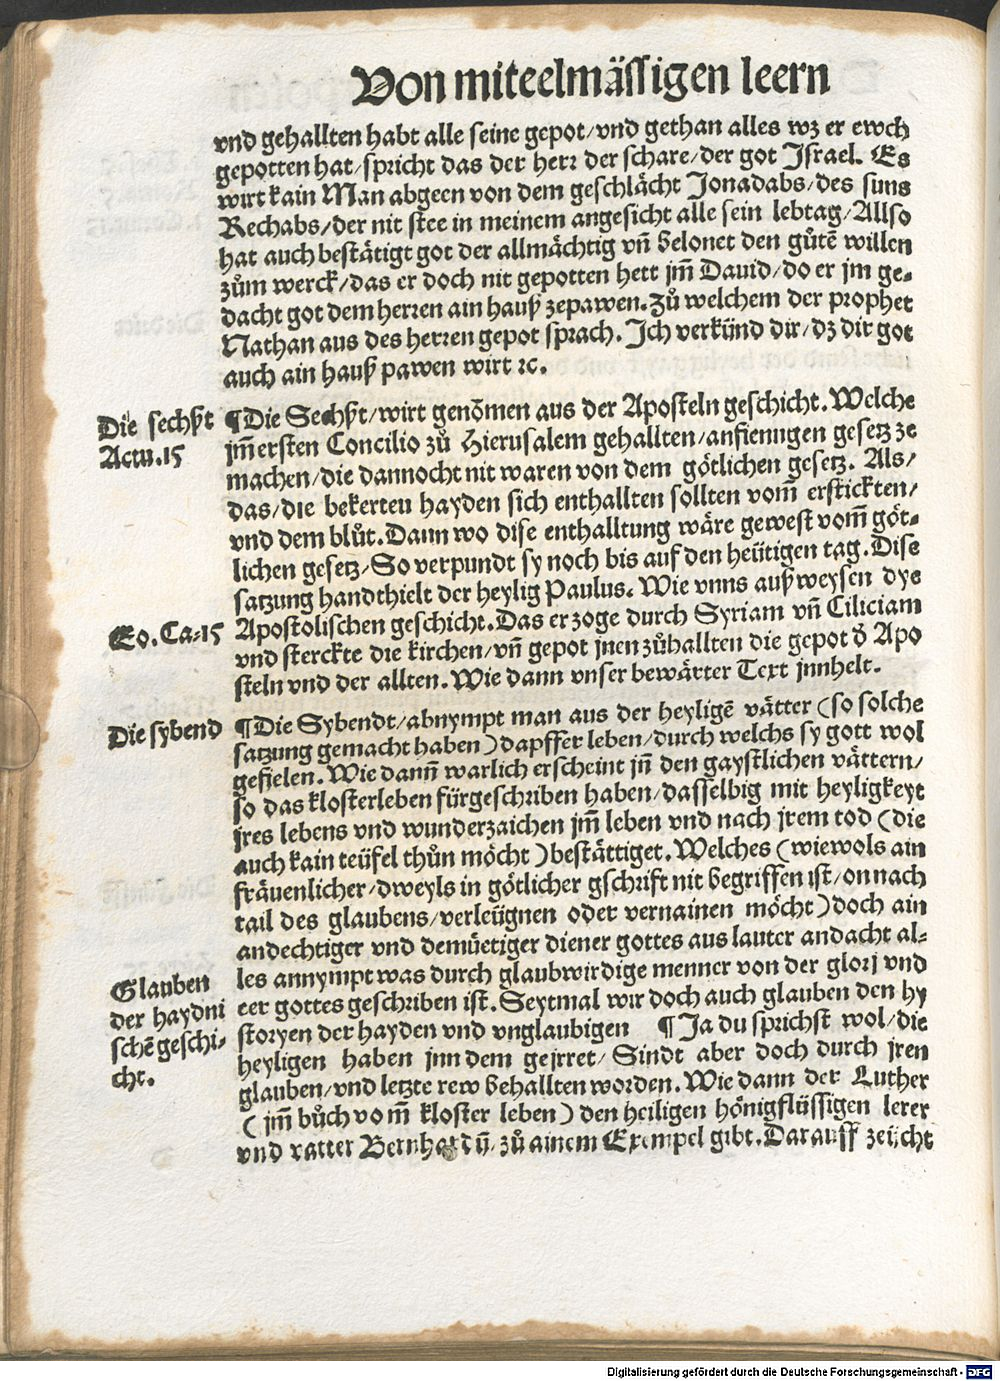 Von miteelmässigen leern
vnd gehallten habt alle seine gepot/vnd gethan alles wz er ewch
gepotten hat/spricht das der herr der schare/der got Israel. Es
wirt kain Man abgeen von dem geschlächt Jonadabs/des suns
Rechabs/der nit stee in meinem angesicht alle sein lebtag/Allso
hat auch bestätigt got der allmächtig vn̄ belonet den gůtē willen
zům werck/das er doch nit gepotten hett jm̄ Dauid/do er jm ge⸗
dacht got dem herren ain hauß zepawen. Zů welchem der prophet
Nathan aus des herren gepot sprach. Ich verkünd dir/dz dir got
auch ain hauß pawen wirt ꝛc.
Die sechßt
Actu.15
¶Die Sechßt/wirt genōmen aus der Aposteln geschicht. Welche
jm̄ ersten Concilio zů Hierusalem gehallten/anfienngen gesetz ze
machen/die dannocht nit waren von dem götlichen gesetz. Als/
das/die bekerteu hayden sich enthallten sollten vom̄ erstickten/
vnd dem blůt. Dann wo dise enthalltung wäre gewest vom̄ göt⸗
lichen gesetz/So verpundt sy noch bis auf den heütigen tag. Dise
satzung handthielt der heylig Paulus. Wie vnns außweysen dye
Eo. Ca⸗15
Apostolischen geschicht. Das er zoge durch Syriam vn̄ Ciliciam
vnd sterckte die kirchen/vn̄ gepot jnen zůhallten die gepot d̄ Apo
steln vnd der allten. Wie dann vnser bewärter Text jnnhelt.
Die sybend
¶Die Sybendt/abnympt man aus der heyligē vätter (so solche
satzung gemacht haben) dapffer leben/durch welchs sy gott wol
gefielen. Wie dann̄ warlich erscheint jn̄ den gaystlichen vättern/
so das klosterleben fürgeschriben haben/dasselbig mit heyligkeyt
jres lebens vnd wunderzaichen jm̄ leben vnd nach jrem tod (die
auch kain teüfel thůn möcht) bestättiget. Welches (wiewols ain
fräuenlicher/dweyls in götlicher gschrift nit begriffen ist/on nach
tail des glaubens/verleügnen oder vernainen möcht) doch ain
andechtiger vnd demüetiger diener gottes aus lauter andacht al⸗
les annympt was durch glaubwirdige menner von der glorj vnd
Glauben
der haydni
schē geschi⸗
cht.
eer gottes geschriben ist. Seytmal wir doch auch glauben den hy
storyen der hayden vnd vnglaubigen ¶Ja du sprichst wol/die
heyligen haben jnn dem gejrret/Sindt aber doch durch jren
glauben/vnd letzte rew behallten worden. Wie dann der Luther
(jm̄ bůch vom̄ kloster leben) den heiligen hönigflüssigen lerer
vnd vatter Bernhard ū zů ainem Exempel gibt. Darauff zeücht
Digitalisierung gefördert durch die Deutsche Forschungsgemeinschaft - DFG